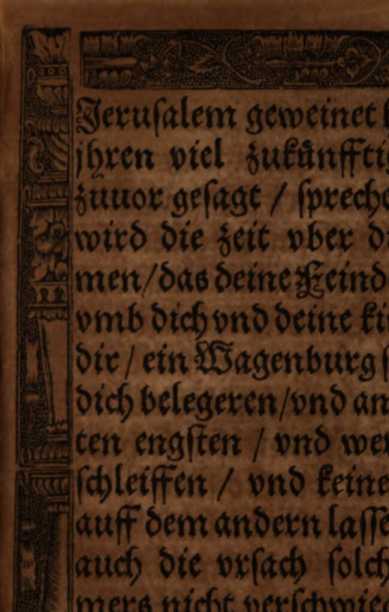 Jerusalem geweinet
jhren viel zukünffti
zuuor gesagt / spreche
wird die zeit vber d
men/das deine Feind
vmb dich vnd deine ki
dir / ein Wagenburg s
dich belegeren/vnd an
ten engsten / vnd wer
schleiffen / vnd keine
auff dem andern lasse
auch die vrsach solch
mers nicht verschwie